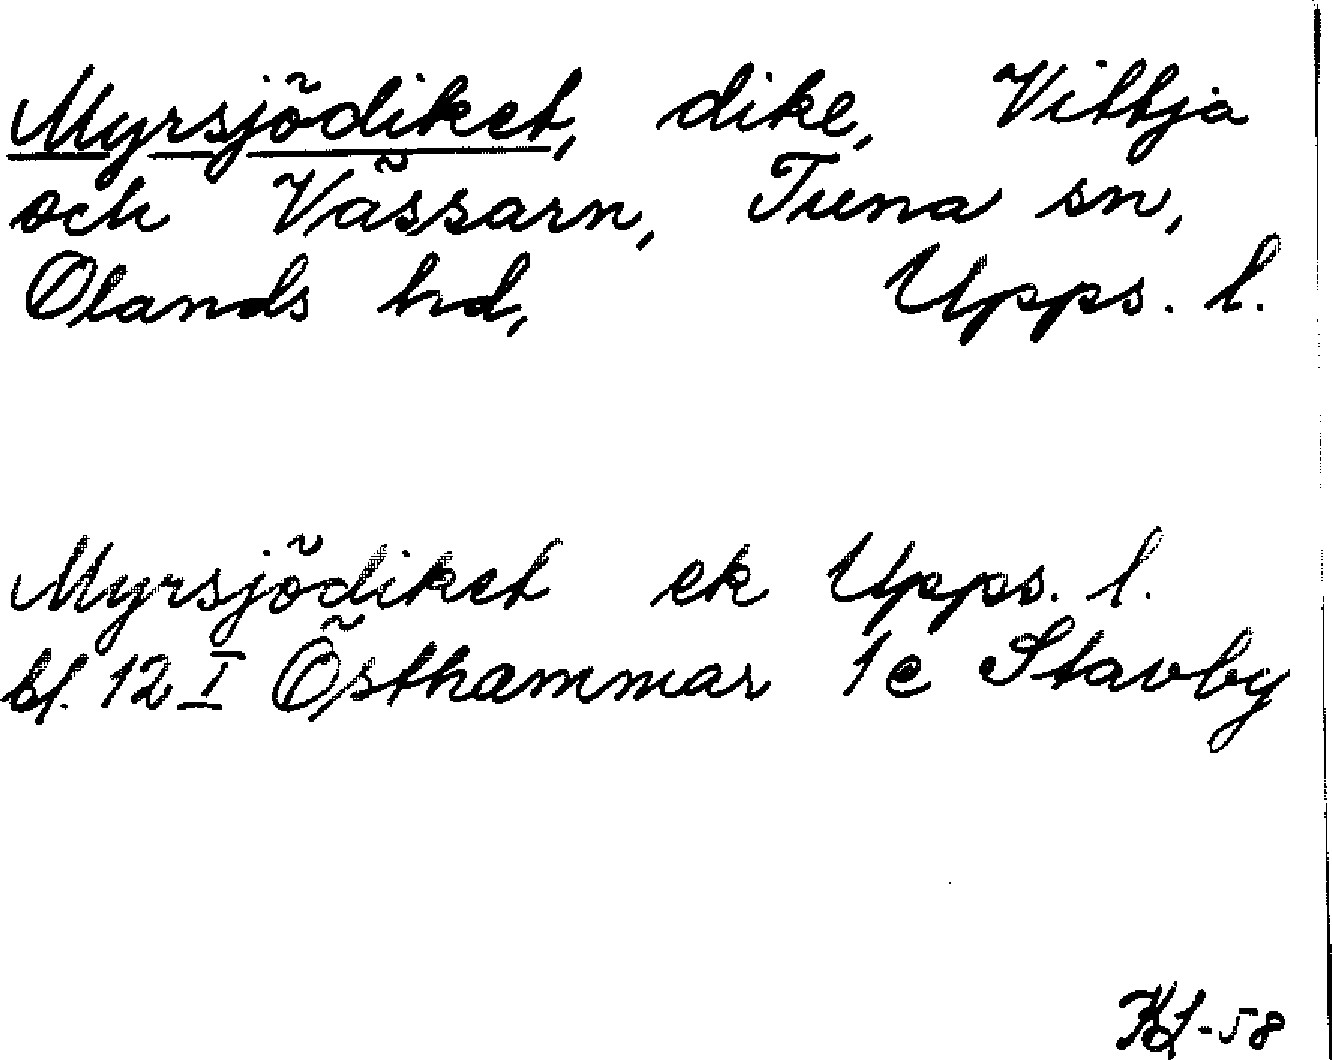 Myrsjödiket, dike, Vittja
och Vässarn, Tuna sn,
Olands hd, Upps. l.
Myrsjödiket ek Upps. l.
bl. 12 I Östhammar 1e Stavby
-58